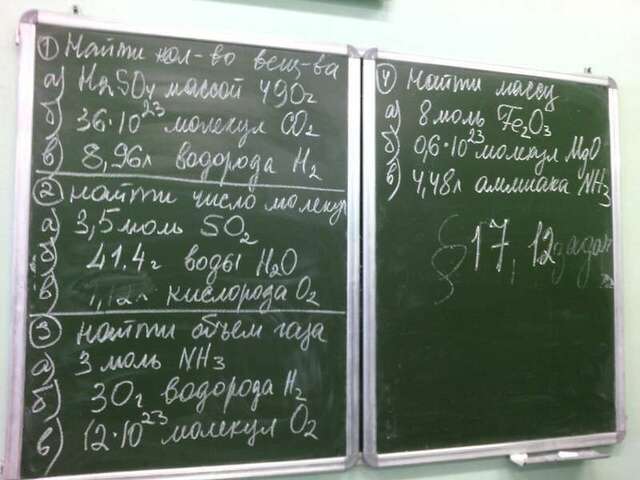 ① Найти кол-во вещ-ва
а) H₂SO₄ массой 490г
б) 36·10²³ молекул CO₂
в) 8,96л водорода H₂
② найти число молекул
а) 3,5 моль SO₂
б) 41.4г воды H₂O
в) 1,12л кислорода O₂
③ найти объем газа
а) 3 моль NH₃
б) 30г водорода H₂
в) 12·10²³ молекул O₂
④ Найти массу
а) 8 моль Fe₂O₃
б) 0,6·10²³ молекул MgO
в) 4,48л аммиака NH₃
§ 17, 12